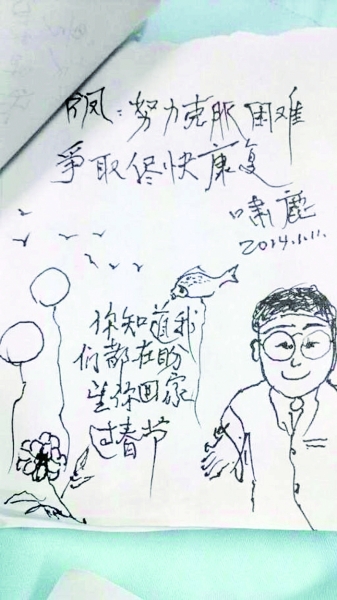 凤：努力克服困难
爭取侭快康复
啸鹿
2014.1.11.
你知道我
们都在盼
望你回家
过春节